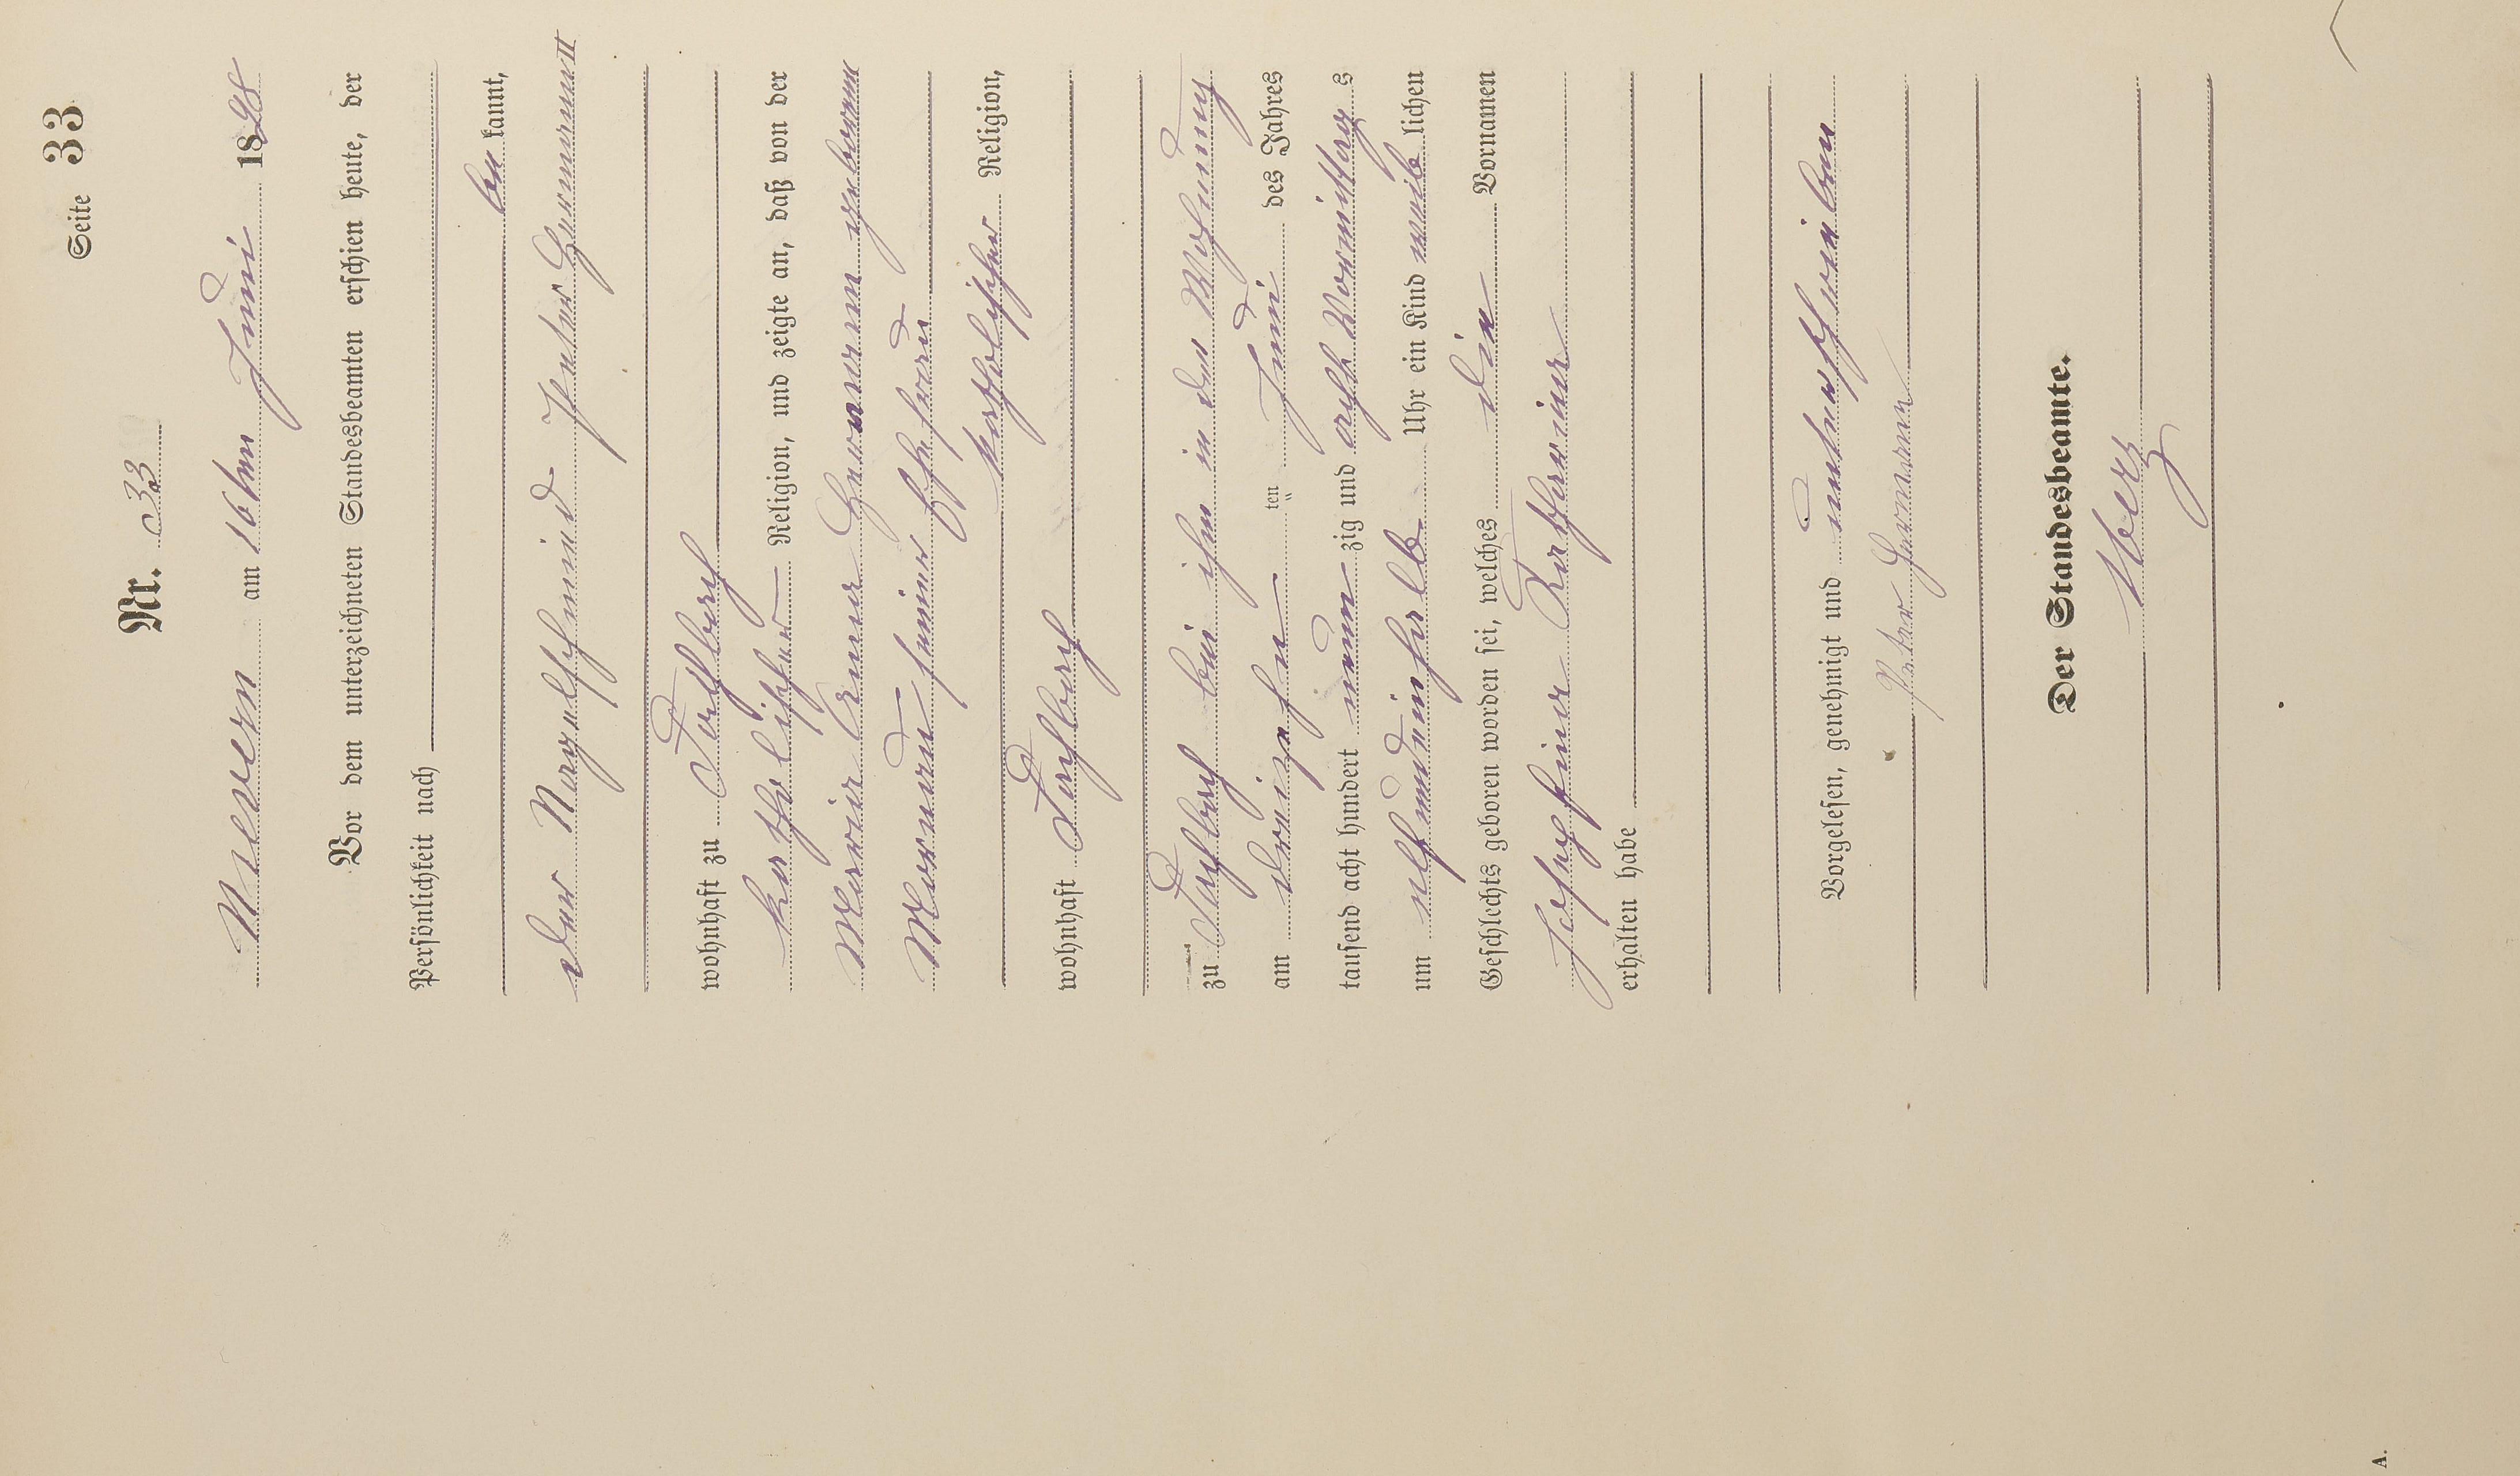 Seite 33
Nr. 33
Nievern am 16ten Juni 1898
Vor dem unterzeichneten Standesbeamten erschien heute, der
Persönlichkeit nach
be kannt,
der Nagelschmied Peter Hermann II
wohnhaft zu Fachbach
katholischer Religion, und zeigte an, daß von der
Maria Anna Hermann geborene
seiner Ehefrau
katholischer Religion,
wohnhaft Fachbach
zu Fachbach bei ihm in der Wohnung
am dreizehn ten Juni des Jahres
tausend acht hundert neun zig und acht Vormittag s
um elf und ein halb Uhr ein Kind weib lichen
Geschlechts geboren worden sei, welches die Vornamen
Josephine Katharina
erhalten habe
Vorgelesen, genehmigt und unterschrieben
Peter Hermann
Der Standesbeamte.
A.